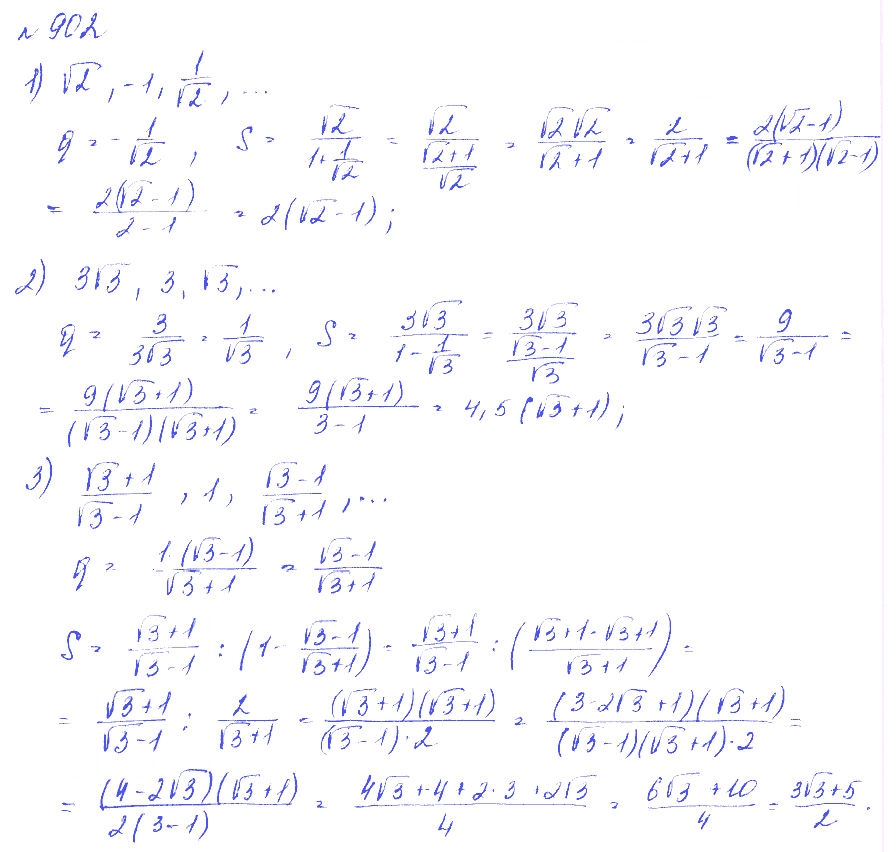 № 902
1) √2, -1, 1/√2, ...
q = -1/√2, S = √2/(1+1/√2) = √2/((√2+1)/√2) = √2√2/(√2+1) = 2/(√2+1) = 2(√2-1)/((√2+1)(√2-1)
= 2(√2-1)/(2-1) = 2(√2-1);
2) 3√3, 3, √3, ...
q = 3/(3√3) = 1/√3, S = 3√3/(1-1/√3) = 3√3/((√3-1)/√3) = 3√3√3/(√3-1) = 9/(√3-1) =
= 9(√3+1)/((√3-1)(√3+1)) = 9(√3+1)/(3-1) = 4,5(√3+1);
3) (√3+1)/(√3-1), 1, (√3-1)/(√3+1), ...
q = 1·(√3-1)/(√3+1) = (√3-1)/(√3+1)
S = (√3+1)/(√3-1) : (1-(√3-1)/(√3+1)) = (√3+1)/(√3-1) : ((√3+1-√3+1)/(√3+1)) =
= (√3+1)/(√3-1) : 2/(√3+1) = (√3+1)(√3+1)/((√3-1)·2) = (3-2√3+1)(√3+1)/((√3-1)(√3+1)·2) =
= (4-2√3)(√3+1)/(2(3-1)) = (4√3+4+2·3+2√3)/4 = (6√3+10)/4 = (3√3+5)/2.